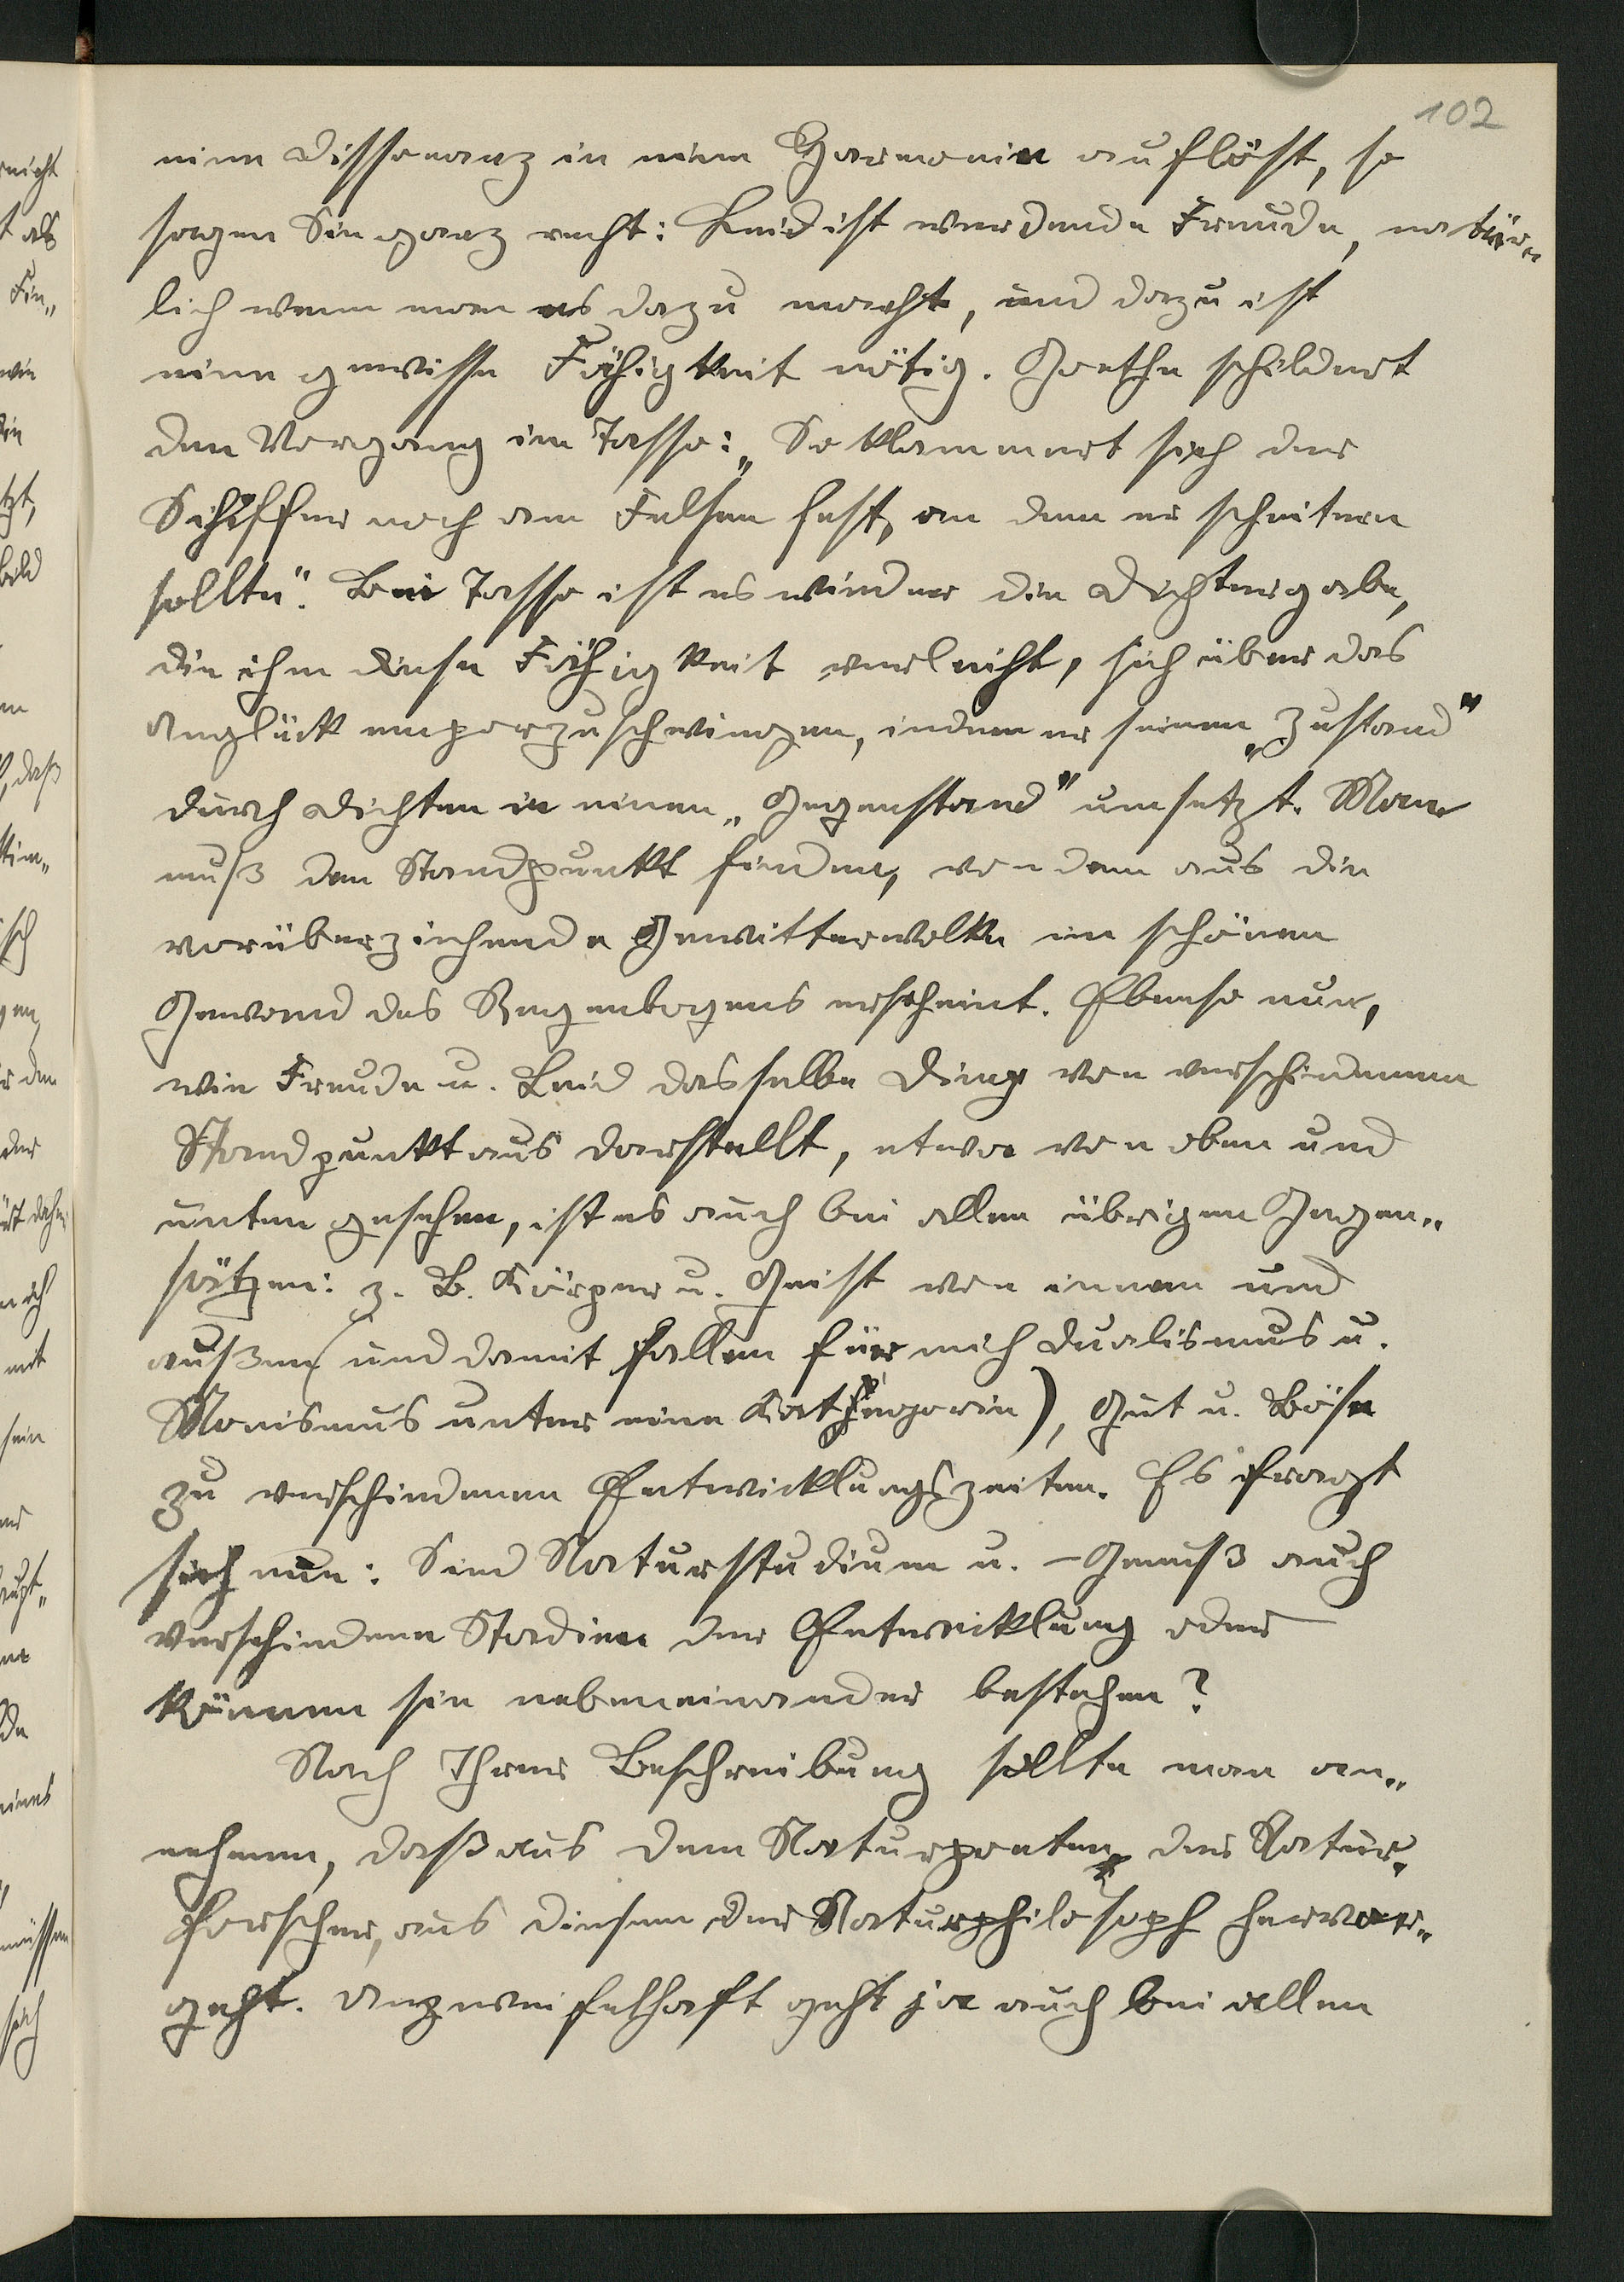 102
eine Dissonanz in eine Harmonie auflöst, so
sagen Sie ganz recht: Leid ist werdende Freude, natür„
lich wenn man es dazu macht, und dazu ist
eine gewisse Fähigkeit nötig. Goethe schildert
den Vorgang im Tasso: „So klammert sich der
Schiffer noch am Felsen fest, an dem er scheitern
sollte“. Bei Tasso ist es wieder die Dichtergabe,
die ihm diese Fähigkeit verleiht, sich über das
Unglück emporzuschwingen, indem er seinen „Zustand“
durch Dichten in einen „Gegenstand“ umsetzt. Man
muß den Standpunkt finden, von dem aus die
vorüberziehende Gewitterwolke im schönen
Gewand des Regenbogens erscheint. Ebenso nun,
wie Freude u. Leid dasselbe Ding von verschiedenem
Standpunkt aus darstellt, etwa von oben und
unten gesehen, ist es auch bei allen übrigen Gegen„
sätzen: z. B. Körper u. Geist von innen und
außen (und damit fallen für mich Dualismus u.
Monismus unter eine Kathegorie), Gut u. Böse
zu verschiedenen Entwicklungszeiten. Es fragt
sich nun: Sind Naturstudium u. -Genuß auch
verschiedene Stadien der Entwicklung oder
können sie nebeneinander bestehen?
Nach Ihrer Beschreibung sollte man an„
nehmen, daß aus dem Naturpoeten der Natur„
forscher, aus diesem der Naturphilosoph hervor„
geht. Unzweifelhaft geht ja auch bei allen